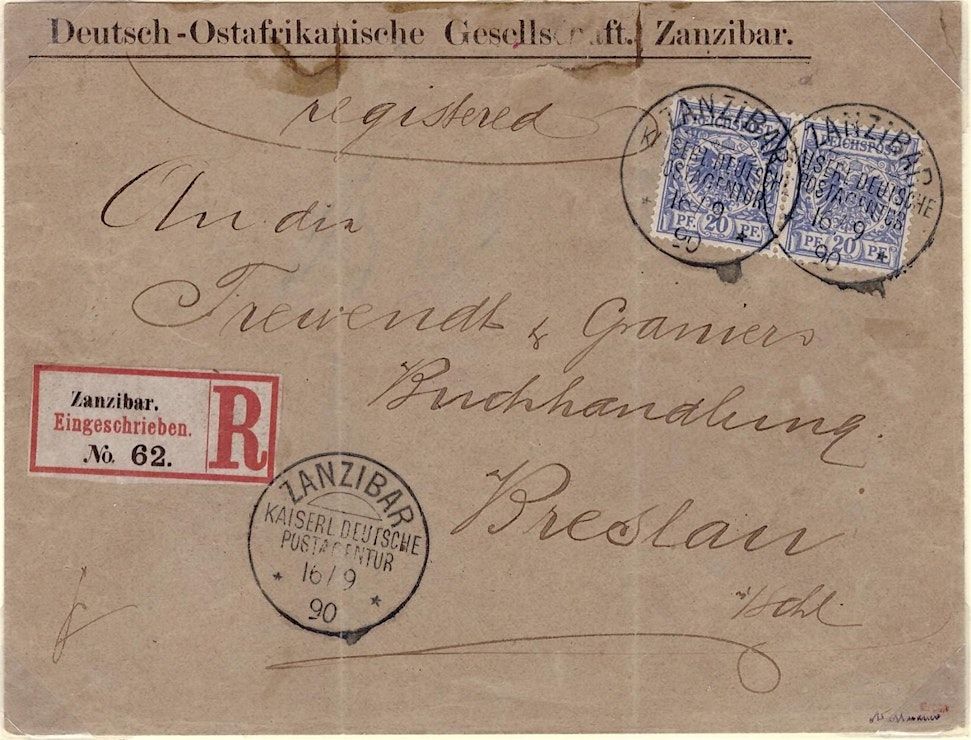 Deutsch-Ostafrikanische Gesellschaft. Zanzibar.
registered
ZANZIBAR
KAISERL DEUTSCHE
POSTAGENTUR
16/9
90
REICHSPOST
PF. 20 PF.
ZANZIBAR
KAISERL DEUTSCHE
POSTAGENTUR
16/9
90
REICHSPOST
PF. 20 PF.
An die
Trewendt & Graniers
Buchhandlung.
Breslau
i/Schl.
Zanzibar.
Eingeschrieben.
No. 62.
R
ZANZIBAR
KAISERL DEUTSCHE
POSTAGENTUR
16/9
90